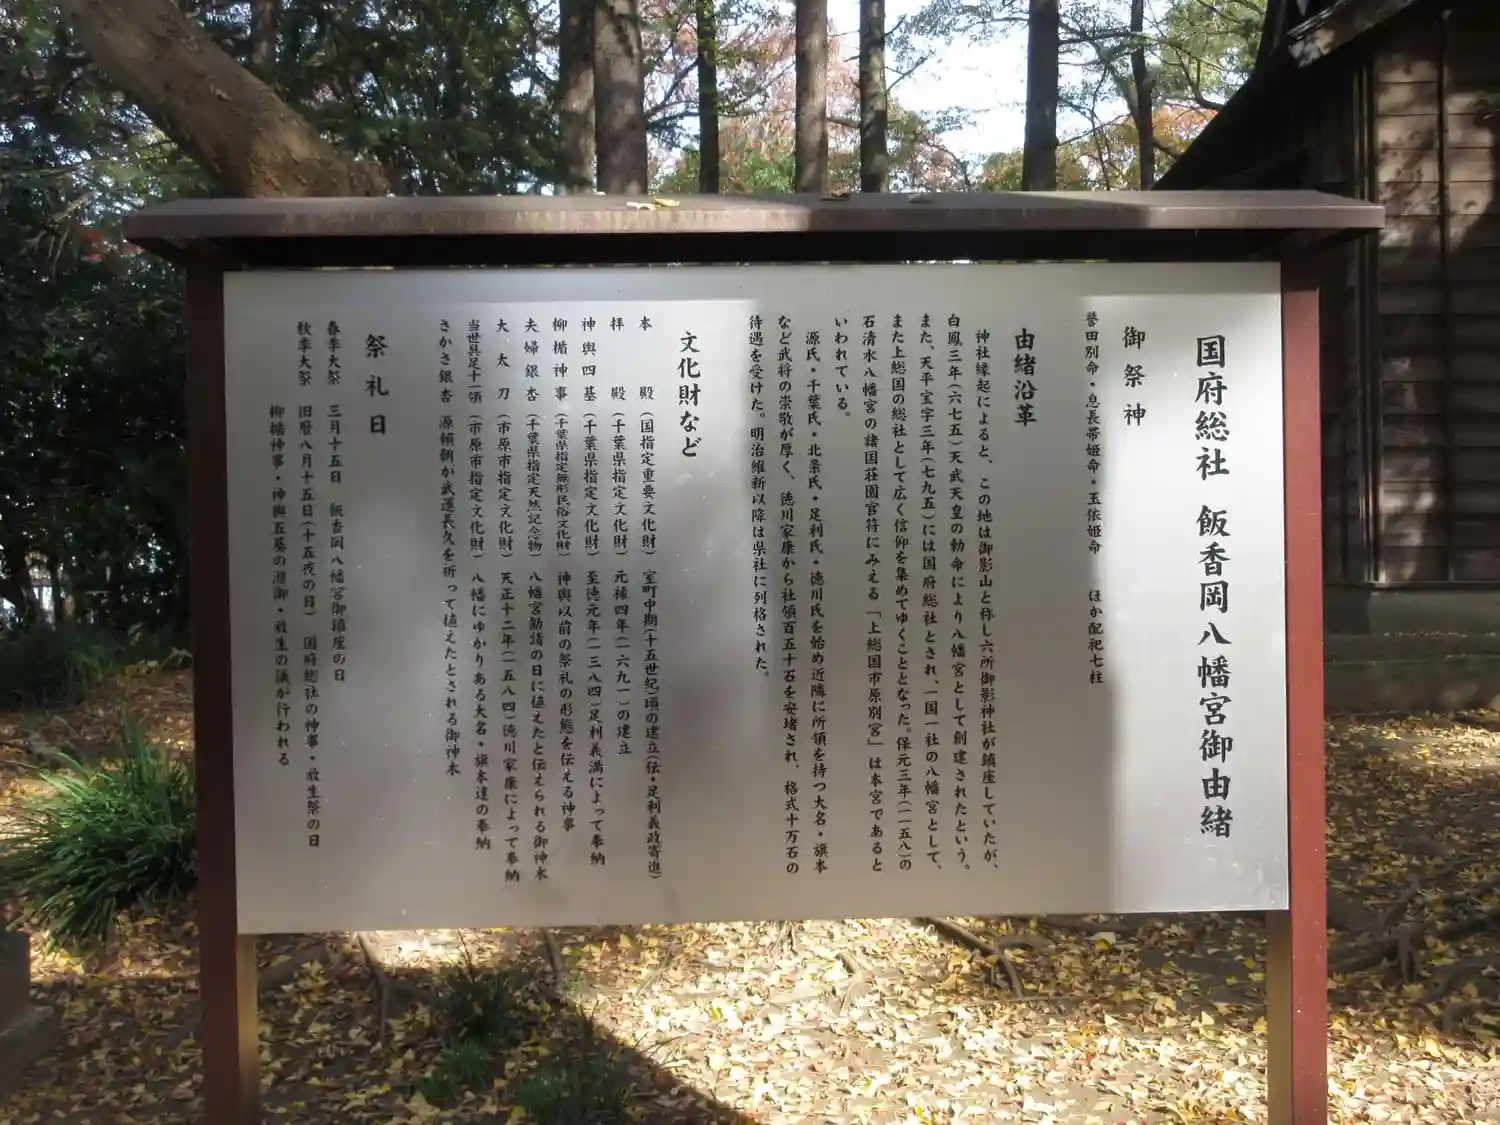 国府総社 飯香岡八幡宮御由緒
御祭神
誉田別命・息長帯姫命・玉依姫命 ほか配祀七柱
由緒沿革
神社縁起によると、この地は御影山と称し六所御影神社が鎮座していたが、
白鳳三年(六七五)天武天皇の勅命により八幡宮として創建されたという。
また、天平宝字三年(七九五)には国府総社とされ、一国一社の八幡宮として、
また上総国の総社として広く信仰を集めてゆくこととなった。保元三年(一一五八)の
石清水八幡宮の諸国荘園官符にみえる「上総国市原別宮」は本宮であると
いわれている。
源氏・千葉氏・北条氏・足利氏・徳川氏を始め近隣に所領を持つ大名・旗本
など武将の崇敬が厚く、徳川家康から社領百五十石を安堵され、格式十万石の
待遇を受けた。明治維新以降は県社に列格された。
文化財など
本殿(国指定重要文化財) 室町中期(十五世紀)頃の建立(伝・足利義政寄進)
拝殿(千葉県指定文化財) 元禄四年(一六九一)の建立
神輿四基(千葉県指定文化財) 至徳元年(一三八四)足利義満によって奉納
柳楯神事(千葉県指定無形民俗文化財) 神輿以前の祭礼の形態を伝える神事
夫婦銀杏(千葉県指定天然記念物) 八幡宮勧請の日に植えたと伝えられる御神木
大太刀(市原市指定文化財) 天正十二年(一五八四)徳川家康によって奉納
当世具足十一領(市原市指定文化財) 八幡にゆかりある大名・旗本達の奉納
さかさ銀杏 源頼朝が武運長久を祈って植えたとされる御神木
祭礼日
春季大祭 三月十五日 飯香岡八幡宮御鎮座の日
秋季大祭 旧暦八月十五日(十五夜の日) 国府総社の神事・放生祭の日
柳楯神事・神輿五基の渡御・放生の議が行われる